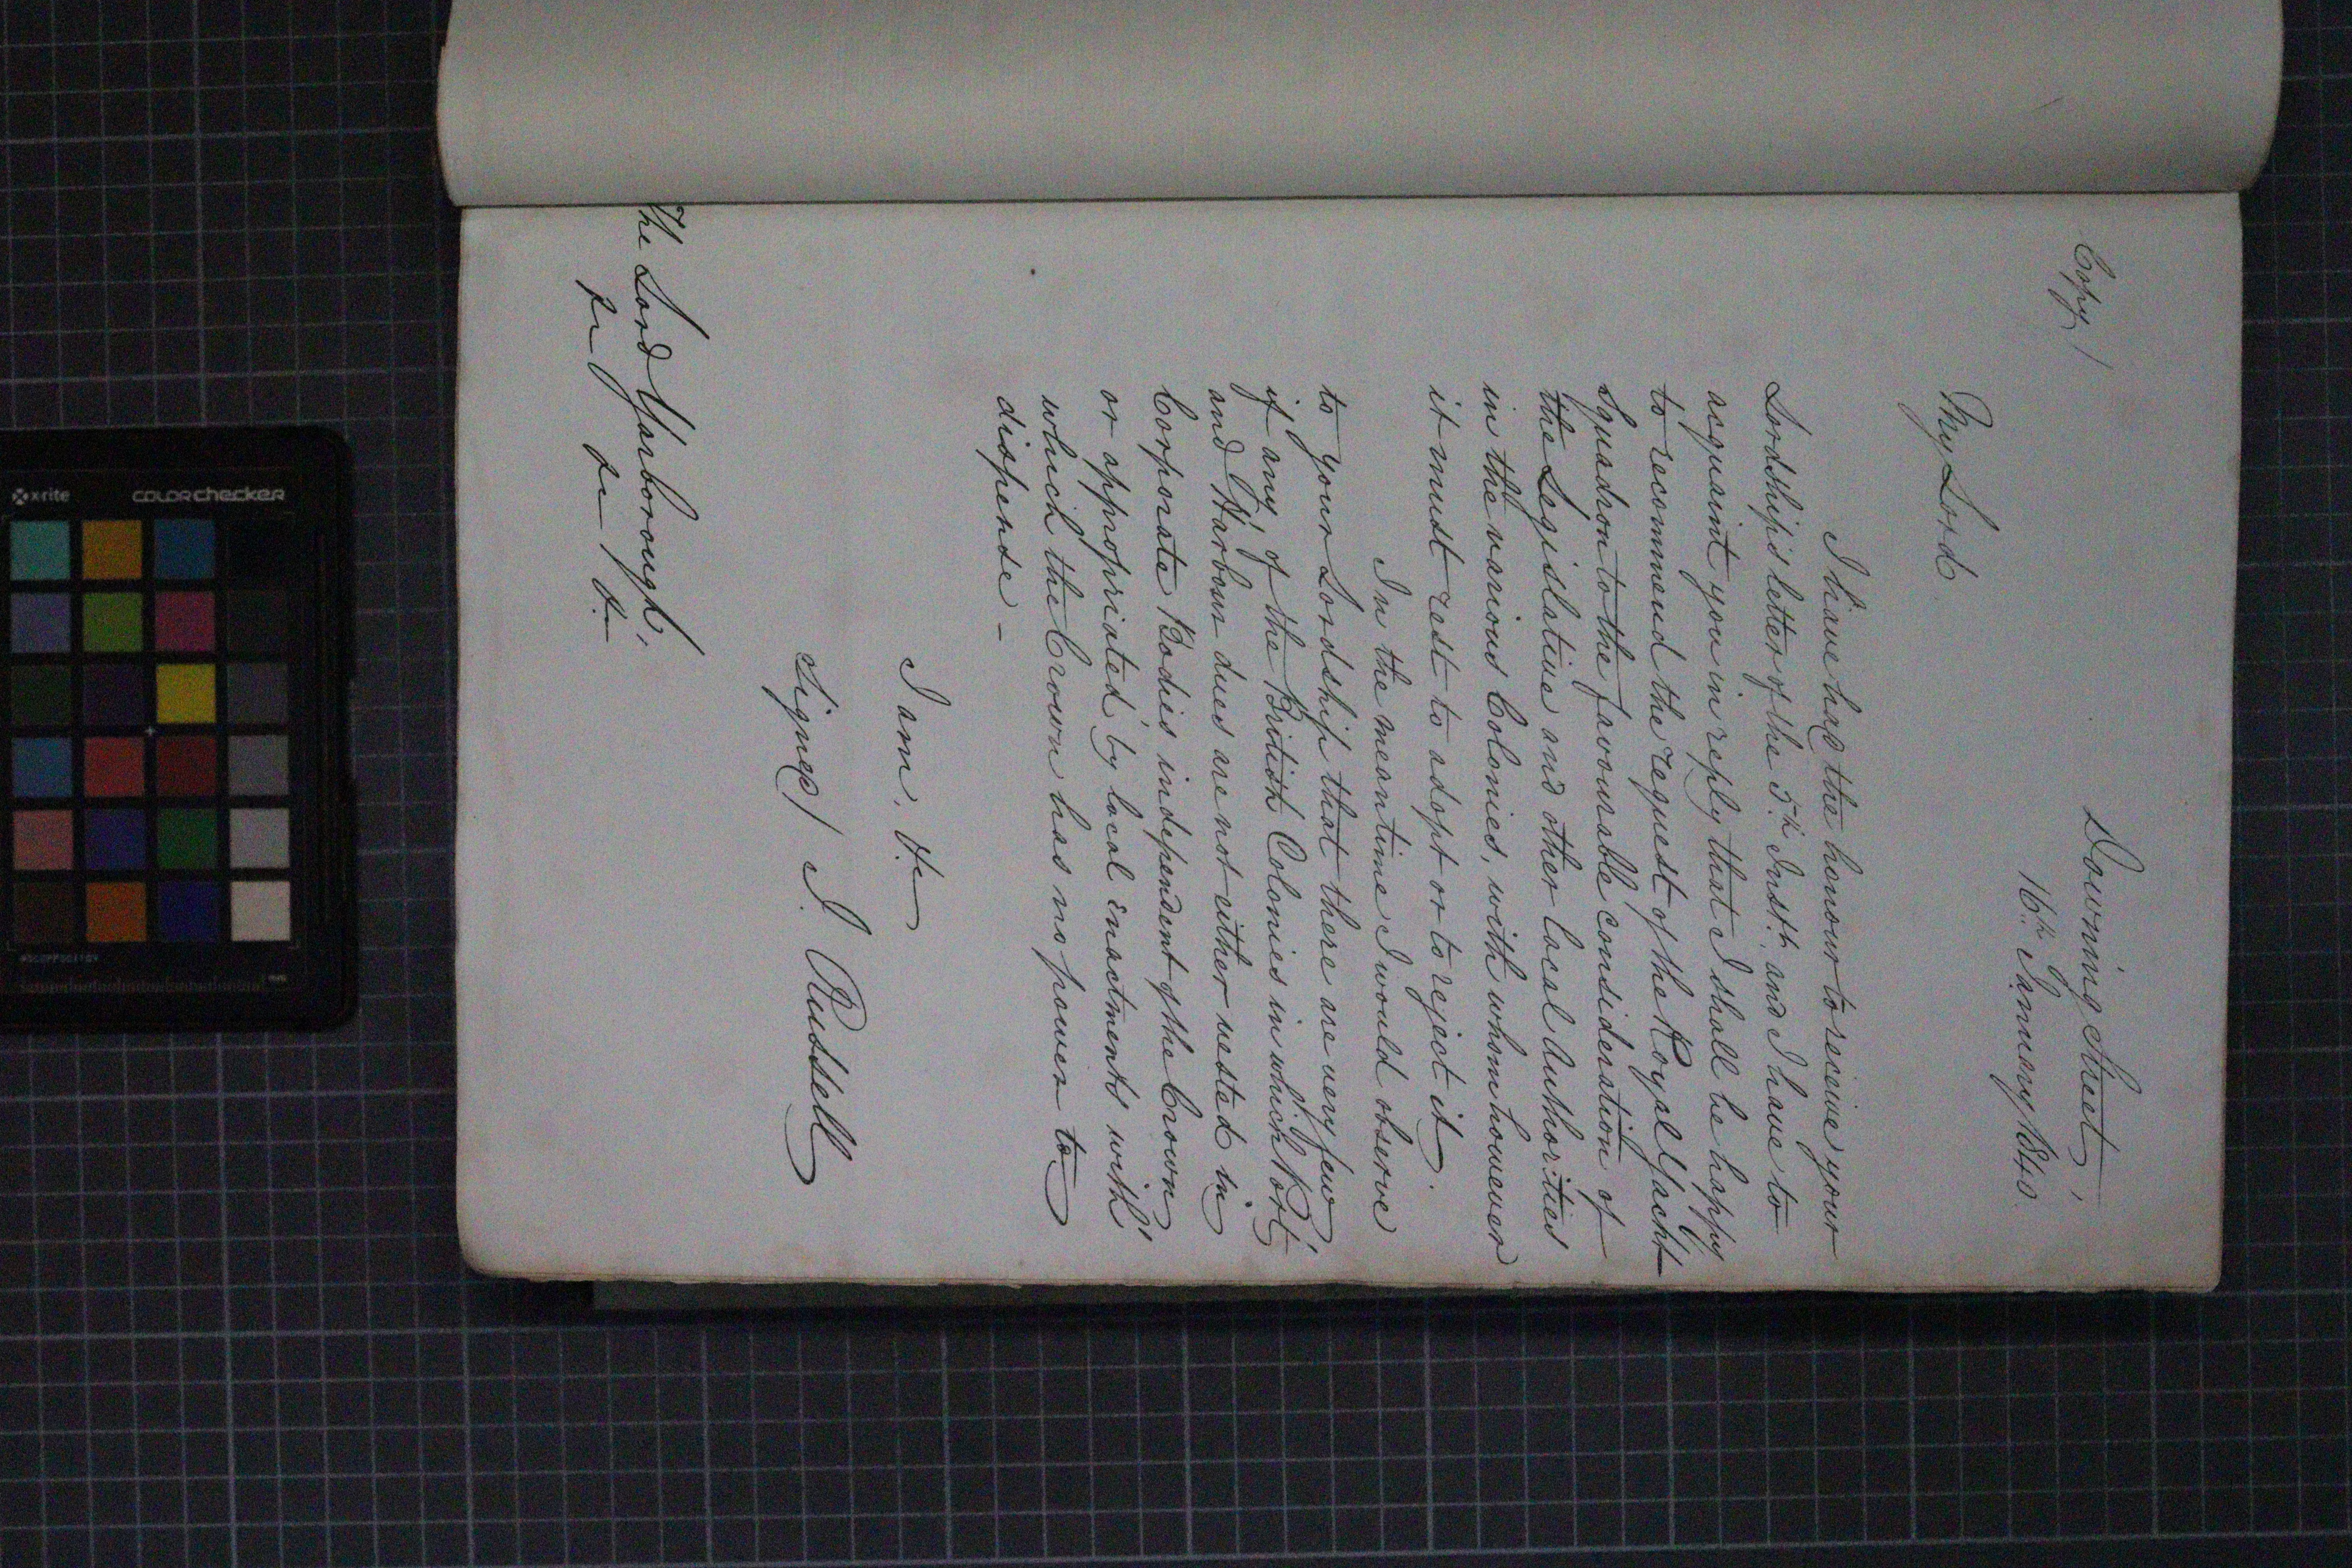 Copy /
Downing Street,
16th January 1840.
My Lord
I have had the honour to receive your
Lordship's letter of the 5th Instt. and I have to
acquaint you in reply that I shall be happy
to recommend the request of the Royal Yacht
Squadron to the favourable consideration of
the Legislative and other local Authorities
in the various Colonies, with whom however
it must rest to adopt or to reject it.
In the meantime I would observe
to your Lordship that there are very few
if any, of the British Colonies in which Port
and Harbour dues are not either vested in
Corporate Bodies independent of the Crown
or appropriated by local enactments with
which the Crown has no power to
dispense -
I am, &c
Signed / J. Russell
The Lord Yarborough,
&c &c &c
x-rite colorchecker